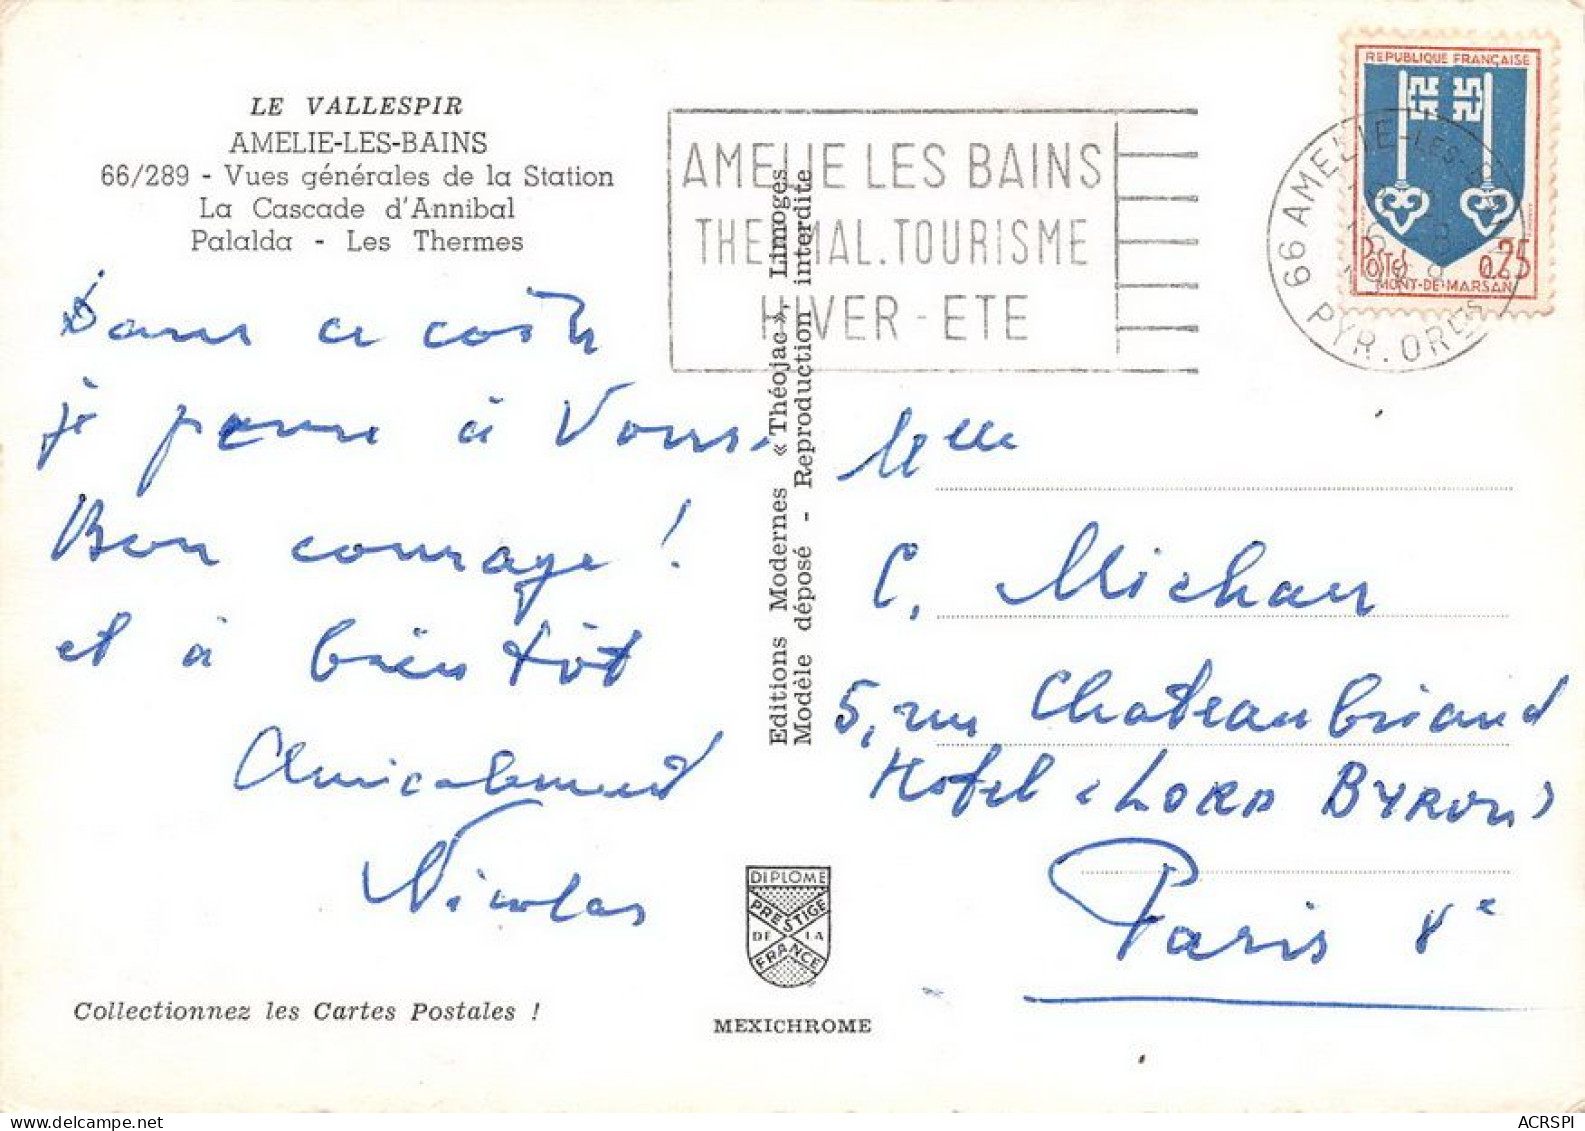 LE VALLESPIR
AMELIE-LES-BAINS
66/289 - Vues générales de la Station
La Cascade d'Annibal
Palalda - Les Thermes
Dans ce coin
je pense à Vous.
Bon courage !
et à bientôt
Amicalement
Nicolas
Collectionnez les Cartes Postales !
Editions Modernes « Théojac », Limoges
Modèle déposé - Reproduction interdite
DIPLOME
PRESTIGE
DE LA
FRANCE
MEXICHROME
AMELIE LES BAINS
THERMAL. TOURISME
HIVER - ETE
REPUBLIQUE FRANÇAISE
POSTES 0,25
MONT-DE-MARSAN
66 AMELIE-LES-B
PYR. ORES
Mlle
C. Michau
5, rue Chateaubriand
Hotel « LORD BYRON »
Paris 8e
ACRSPI